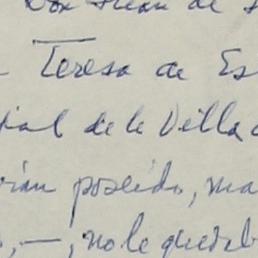 Don Juan de
Teresa de Es
pal de la Villa
poseido, ma
, —, no le quedab